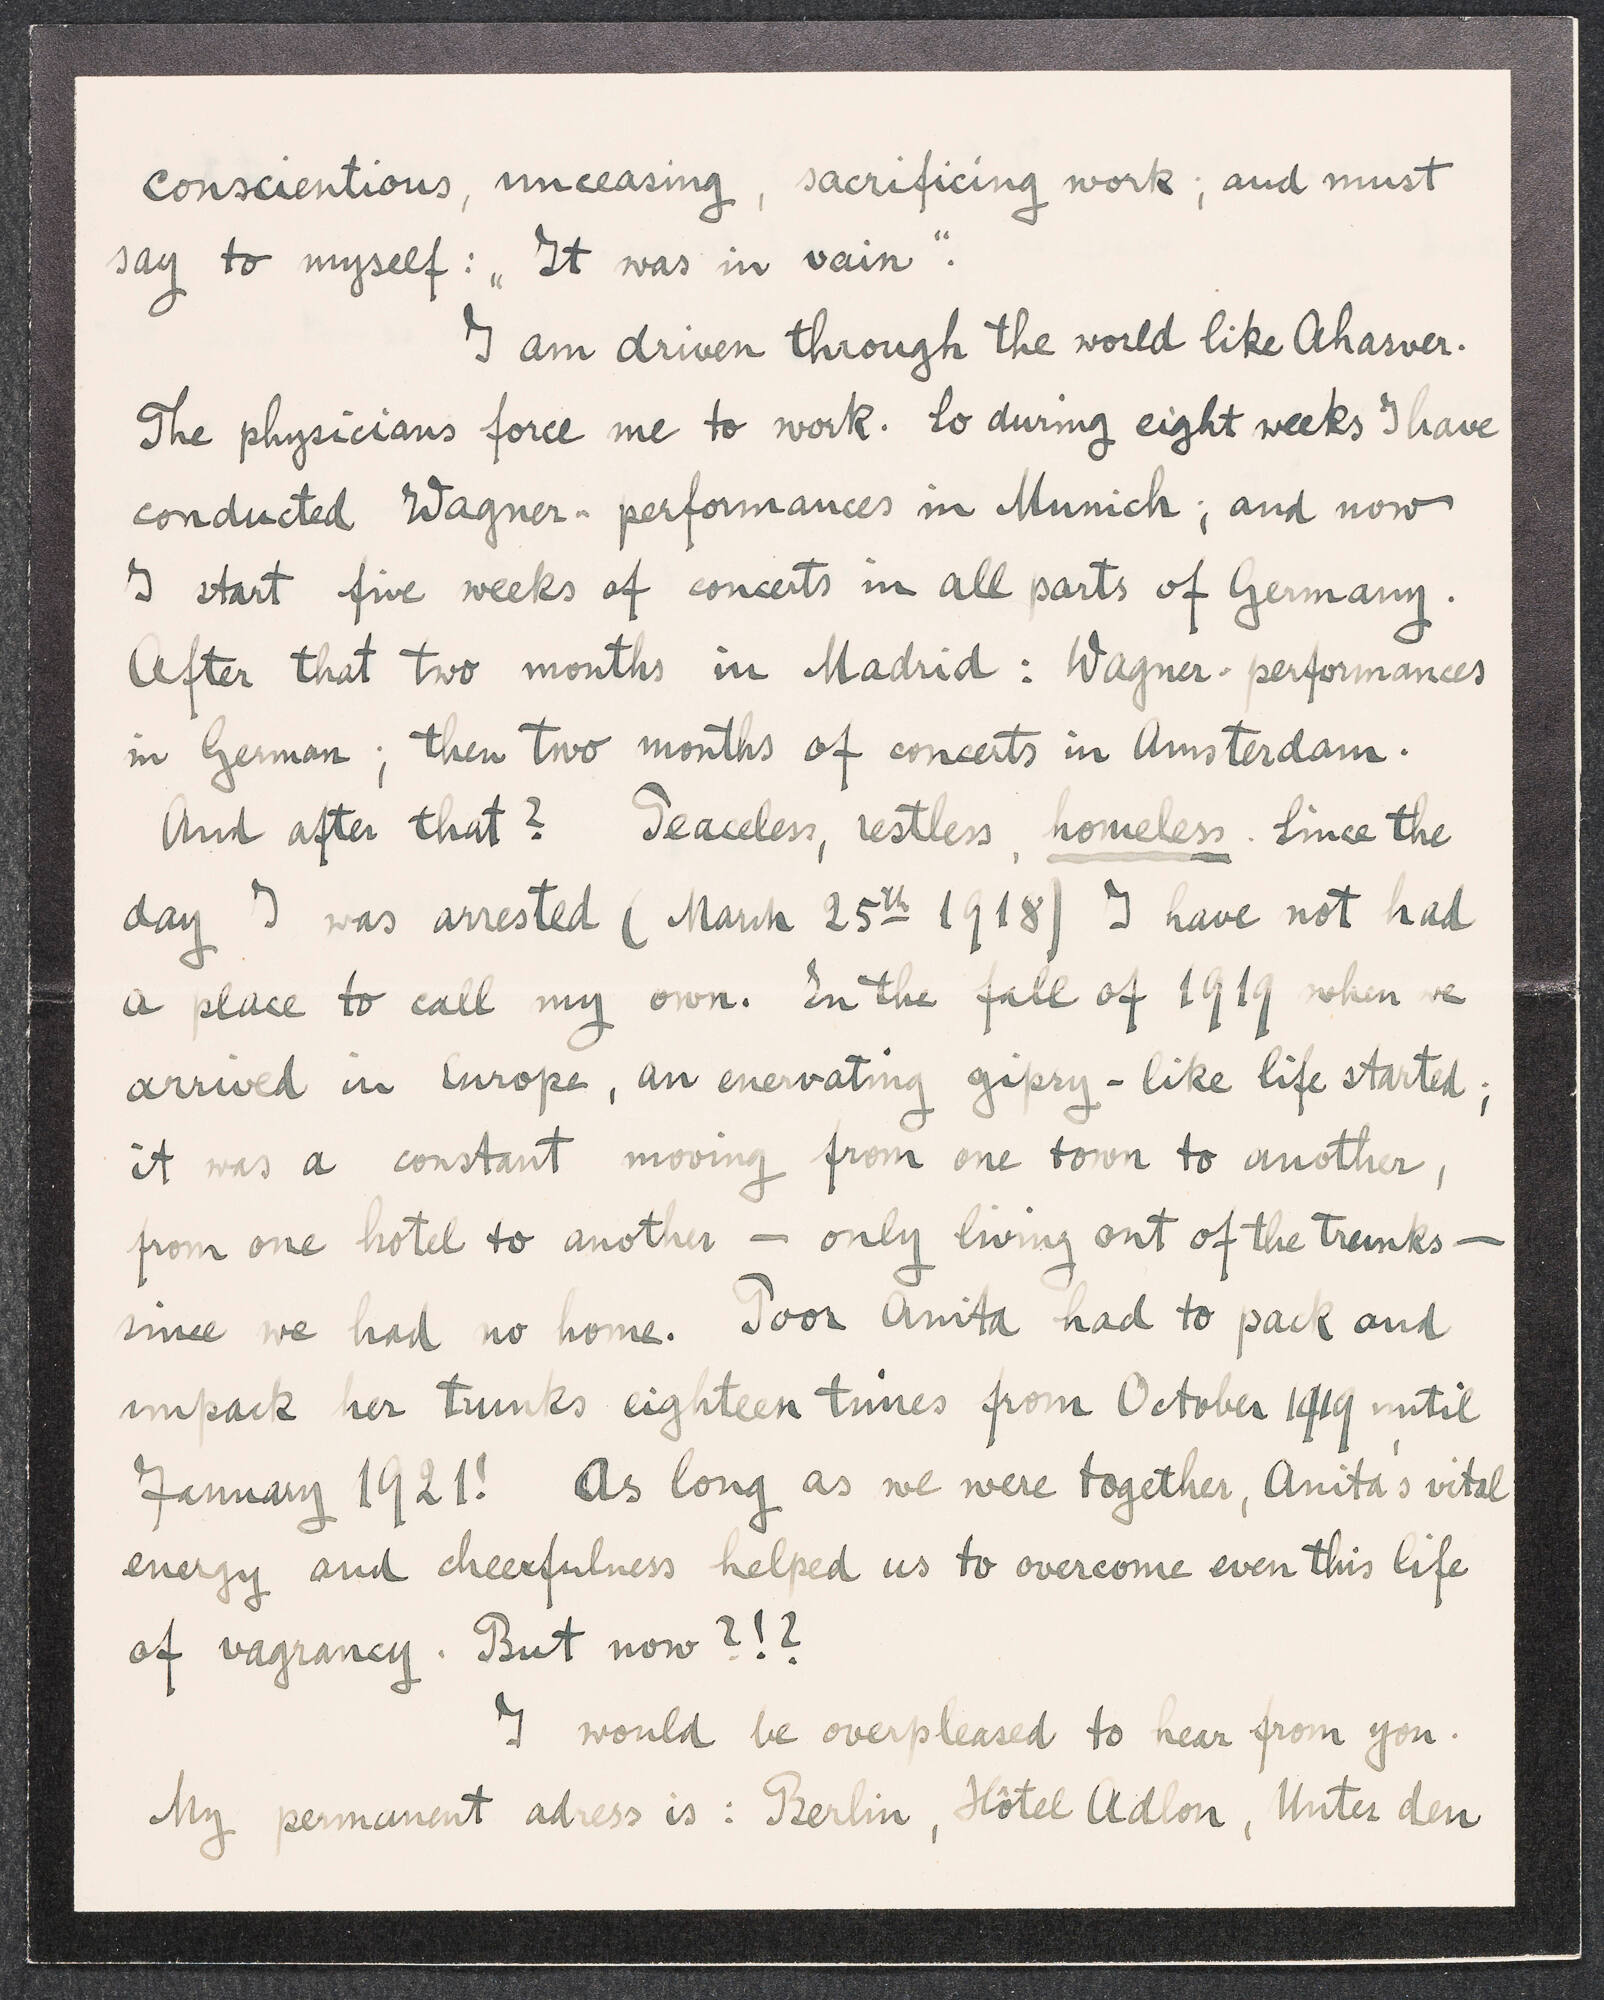 conscientious, unceasing, sacrificing work; and must
say to myself: „It was in vain“.
I am driven through the world like Ahasver.
The physicians force me to work. So during eight weeks I have
conducted Wagner-performances in Munich; and now
I start five weeks of concerts in all parts of Germany.
After that two months in Madrid: Wagner-performances
in German; then two months of concerts in Amsterdam.
And after that? Peaceless, restless, homeless. Since the
day I was arrested (March 25th 1918) I have not had
a place to call my own. In the fall of 1919 when we
arrived in Europe, an enervating gipsy-like life started;
it was a constant moving from one town to another,
from one hotel to another — only living out of the trunks —
since we had no home. Poor Anita had to pack and
unpack her trunks eighteen times from October 1919 until
January 1921! As long as we were together, Anita's vital
energy and cheerfulness helped us to overcome even this life
of vagrancy. But now?!?
I would be overpleased to hear from you.
My permanent adress is: Berlin, Hôtel Adlon, Unter den